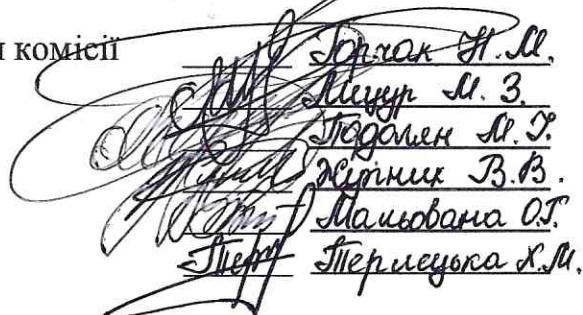 комісії Горчак Н. М.
Мицур М. З.
Подолян М. Я.
Журник В. В.
Мальована О. Г.
Терлецька Х. М.